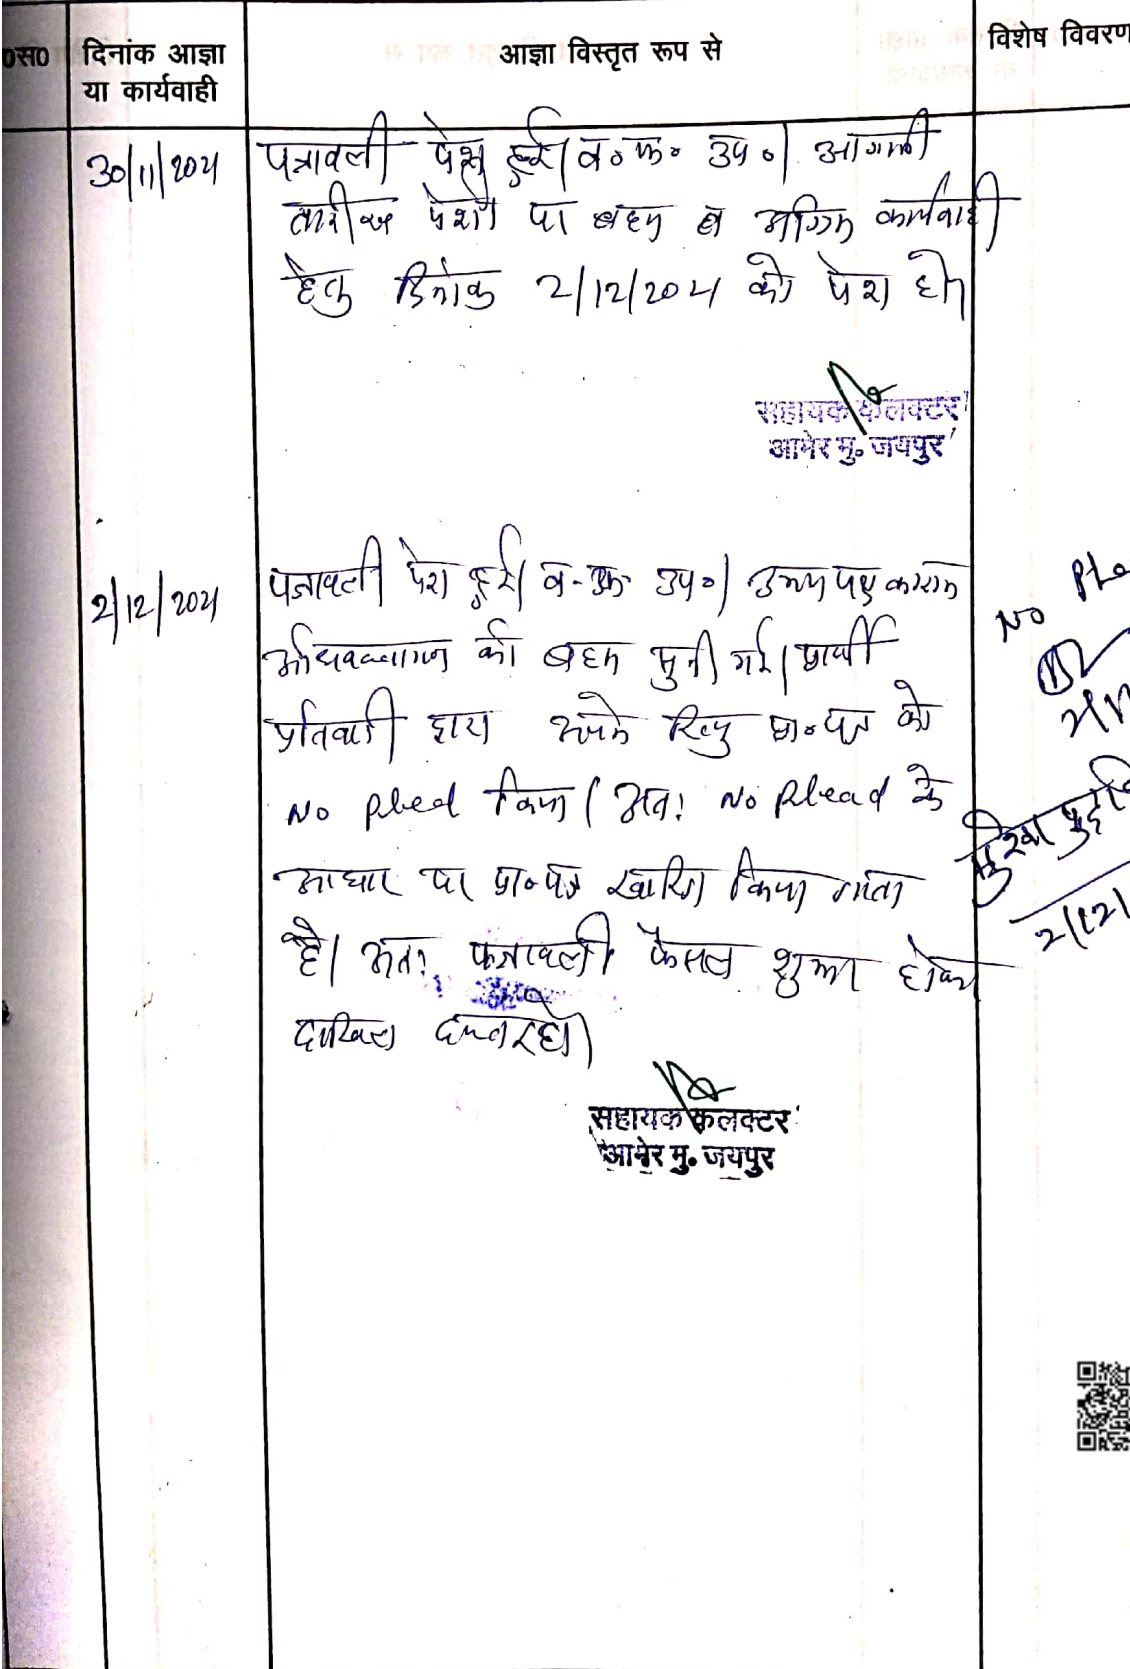 ०स० दिनांक आज्ञा या कार्यवाही
आज्ञा विस्तृत रूप से
विशेष विवरण
30/11/2021
पत्रावली पेश हुई। व०फ० उप०। आगामी
तारीख पेशी पर बहस व अग्रिम कार्यवाही
हेतु दिनांक 2/12/2021 को पेश हो।
सहायक कलक्टर
आमेर मु० जयपुर
2/12/2021
पत्रावली पेश हुई। व-फ उप०। उभय पक्षकारान
अधिवक्तागण की बहस सुनी गई। प्रार्थी
प्रतिवादी द्वारा प्रा०पत्र को
No plead किया। अतः No plead के
आधार पर प्रा०पत्र खारिज किया जाता
है। अतः पत्रावली फैसल शुमार होकर
दाखिल दफ्तर हो।
सहायक कलक्टर
आमेर मु० जयपुर
No Ple
2/12/